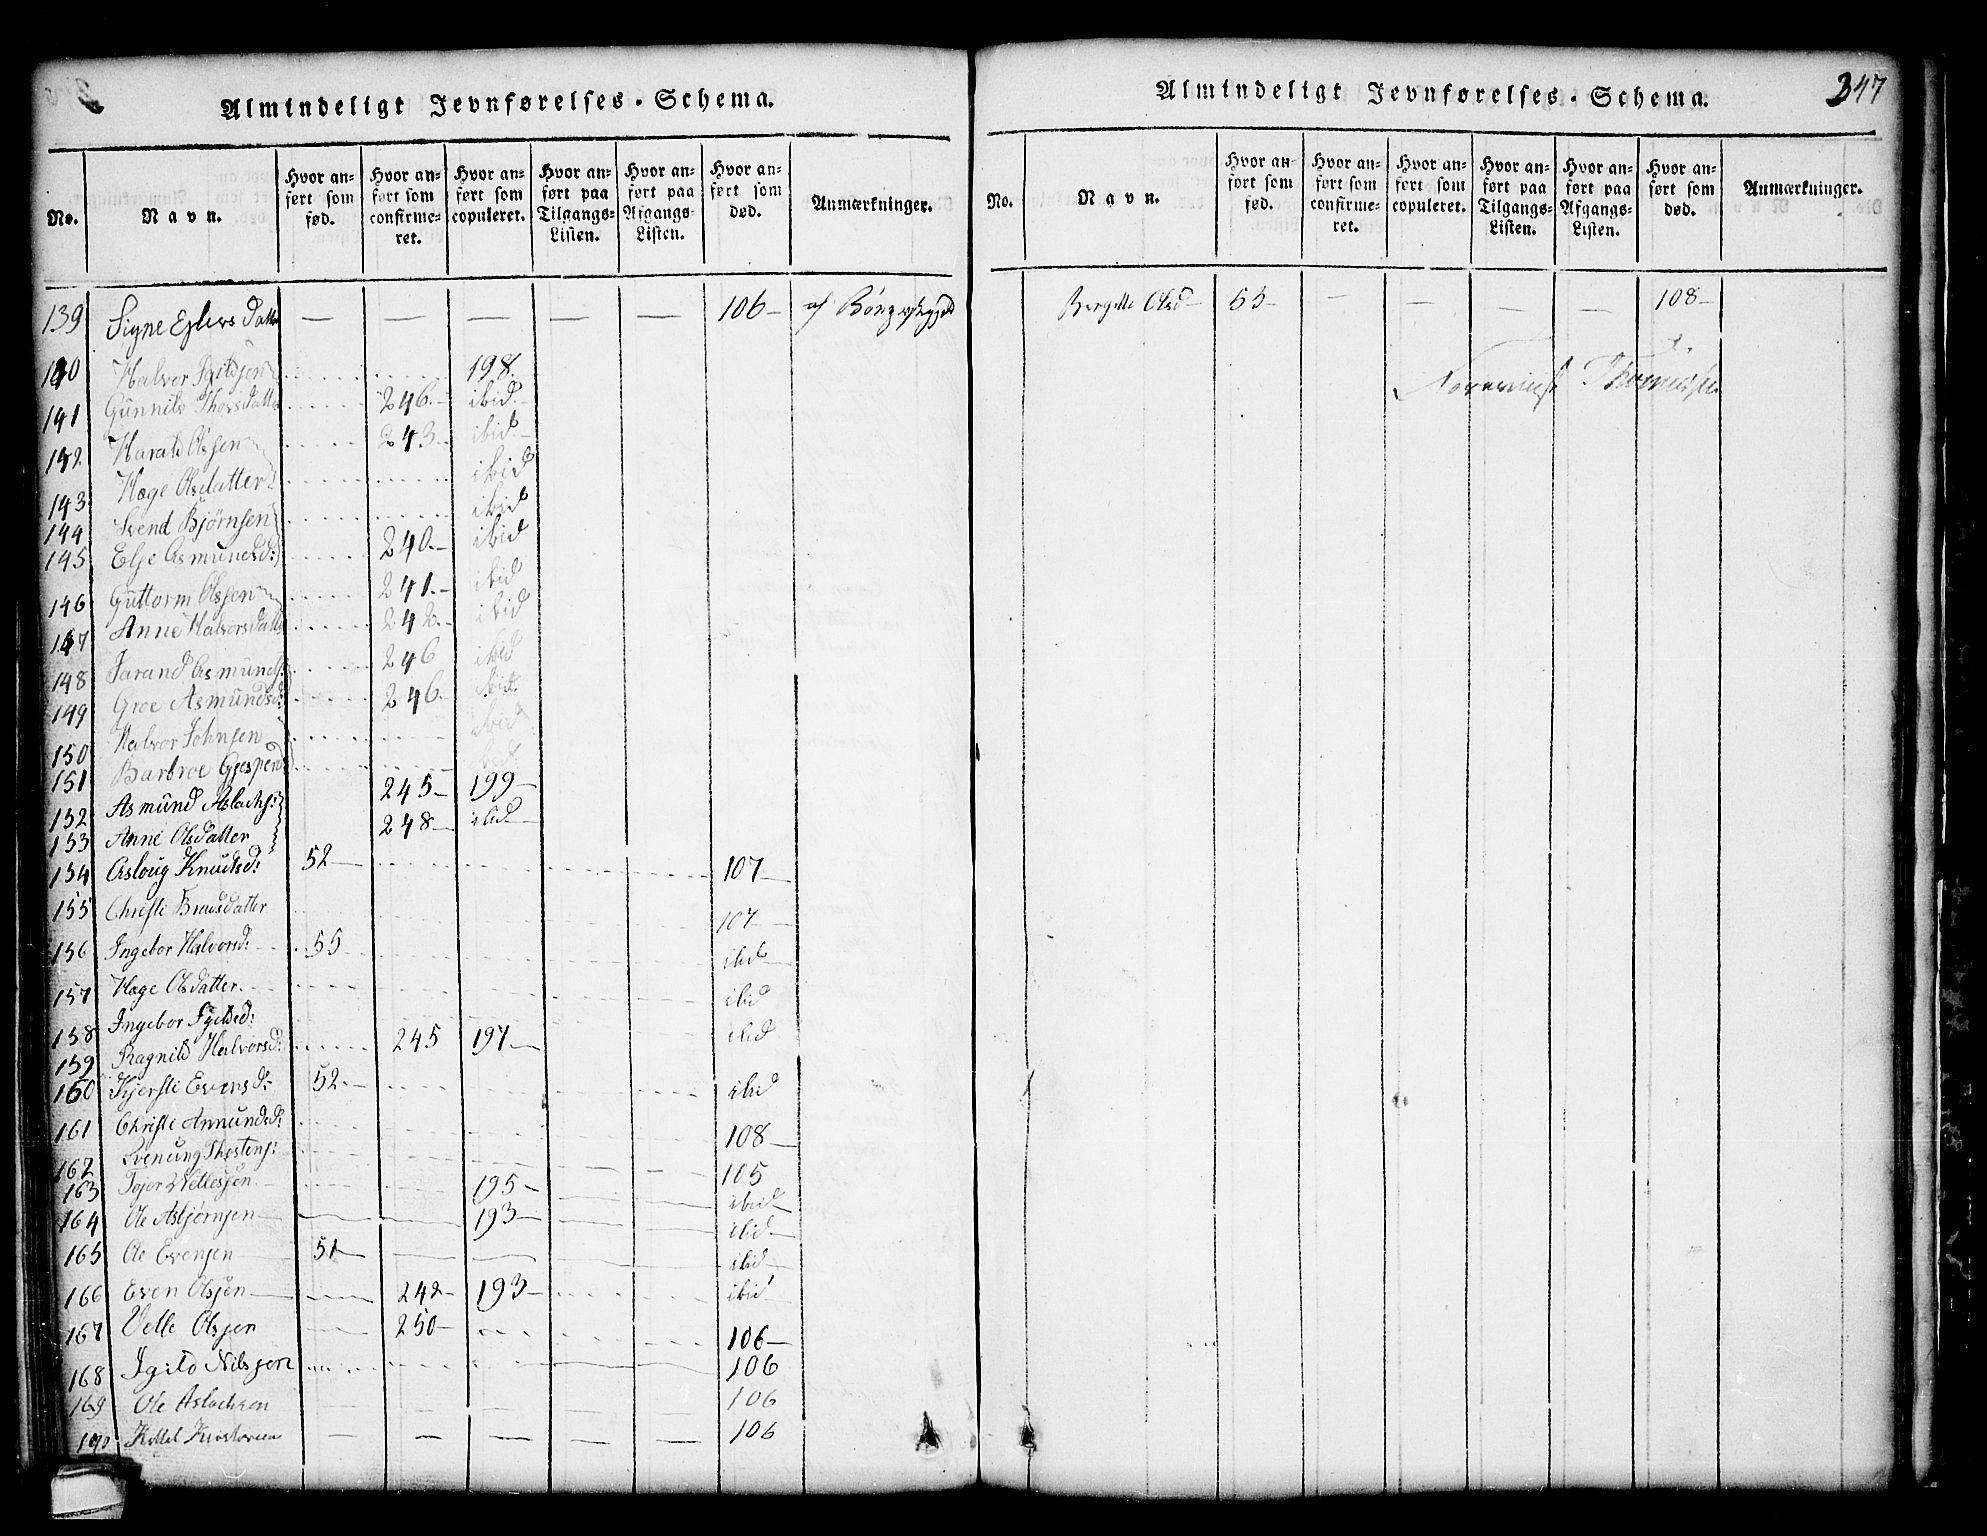 Almindeligt Jevnførelses-Schema.
No. | Navn. | Hvor anført som fød. | Hvor anført som confirmeret. | Hvor anført som copuleret. | Hvor anført paa Tilgangs-Listen. | Hvor anført paa Afgangs-Listen. | Hvor anført som død. | Anmærkninger.
139 Signe Ejlers Datter — — — — — 106 — af
140 Halvor 198.
141 Gunnild Thorsdatter 246.- ibid
142 Harald Olssen 243.- ibid
143 Hæge Olsdatter ibid
144 Svend Bjørnsen ibid
145 Else Asmundsd: 240.- ibid
146 Guttorm Olssen 241.- ibid
147 Anne Halvorsdatter 242.- ibid
148 Tarand Asmunds: 246 ibid
149 Groe Asmundsd: 246.- ibid
150 Halvor Johnsen ibid
151 Barbroe ibid
152 Asmund Aslachs: 245 — 199 —
153 Anne Olsdatter 248 — ibid —
154 Asloug Knudsd: 52 — 107 —
155 Christi 107 —
156 Ingebor Halvorsd: 55 ibid
157 Hæge Olsdatter ibid
158 Ingebor ibid
159 Ragnild Halvorsd: 245 197 —
160 Kjersti Evensd: 52.— ibid
161 Christi Anmundsd: 108 —
162 Svenung Thostens: 105
163 Vettesen 195 — ibid
164 Ole Asbjørnsen 193 — ibid
165 Ole Evensen 51 — ibid
166 Even Olsen 242 — 193 — ibid
167 Vetle Olssen 250 — 106 —
168 Nilssen 106
169 Ole Aslachsen 106
190 Kittel — — — — — 106
Almindeligt Jevnførelses-Schema.
347
No. | Navn. | Hvor anført som fød. | Hvor anført som confirmeret. | Hvor anført som copuleret. | Hvor anført paa Tilgangs-Listen. | Hvor anført paa Afgangs-Listen. | Hvor anført som død. | Anmærkninger.
Bergitte Olsd — 55 — — — — — 108 —